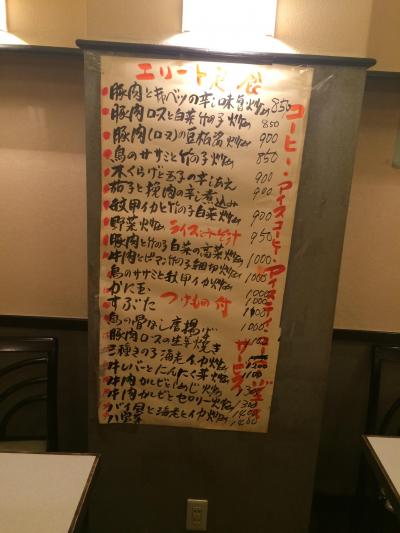 エリート定食
豚肉とキャベツの辛し味噌炒め 850
豚肉ロスと白菜竹の子炒め 850
豚肉(ロス)の豆板醤炒め 900
鳥のササミと竹の子炒め 850
木くらげと玉子の辛し和え 900
茄子と挽肉の辛し煮込み 900
紋甲イカと竹の子白菜炒め 900
野菜炒め 950
豚肉と竹の子白菜の高菜炒め 1000
牛肉とピーマン竹の子細切炒め 1000
鳥のササミと紋甲イカ炒め 1000
かに玉 1000
すぶた 1000
鳥の骨なし唐揚げ 1000
豚肉ロスの生姜焼き
三種きのこ海老イカ炒め 1200
牛レバーとにんにく芽炒め 1100
牛肉かしとしめじ炒め
牛肉かしとセロリー炒め 1300
海老とイカ炒め 1400
八宝菜 1400
ライス みそ汁
つけもの付
コーヒー・アイスコーヒー・アイスティ・コーラ
サービス